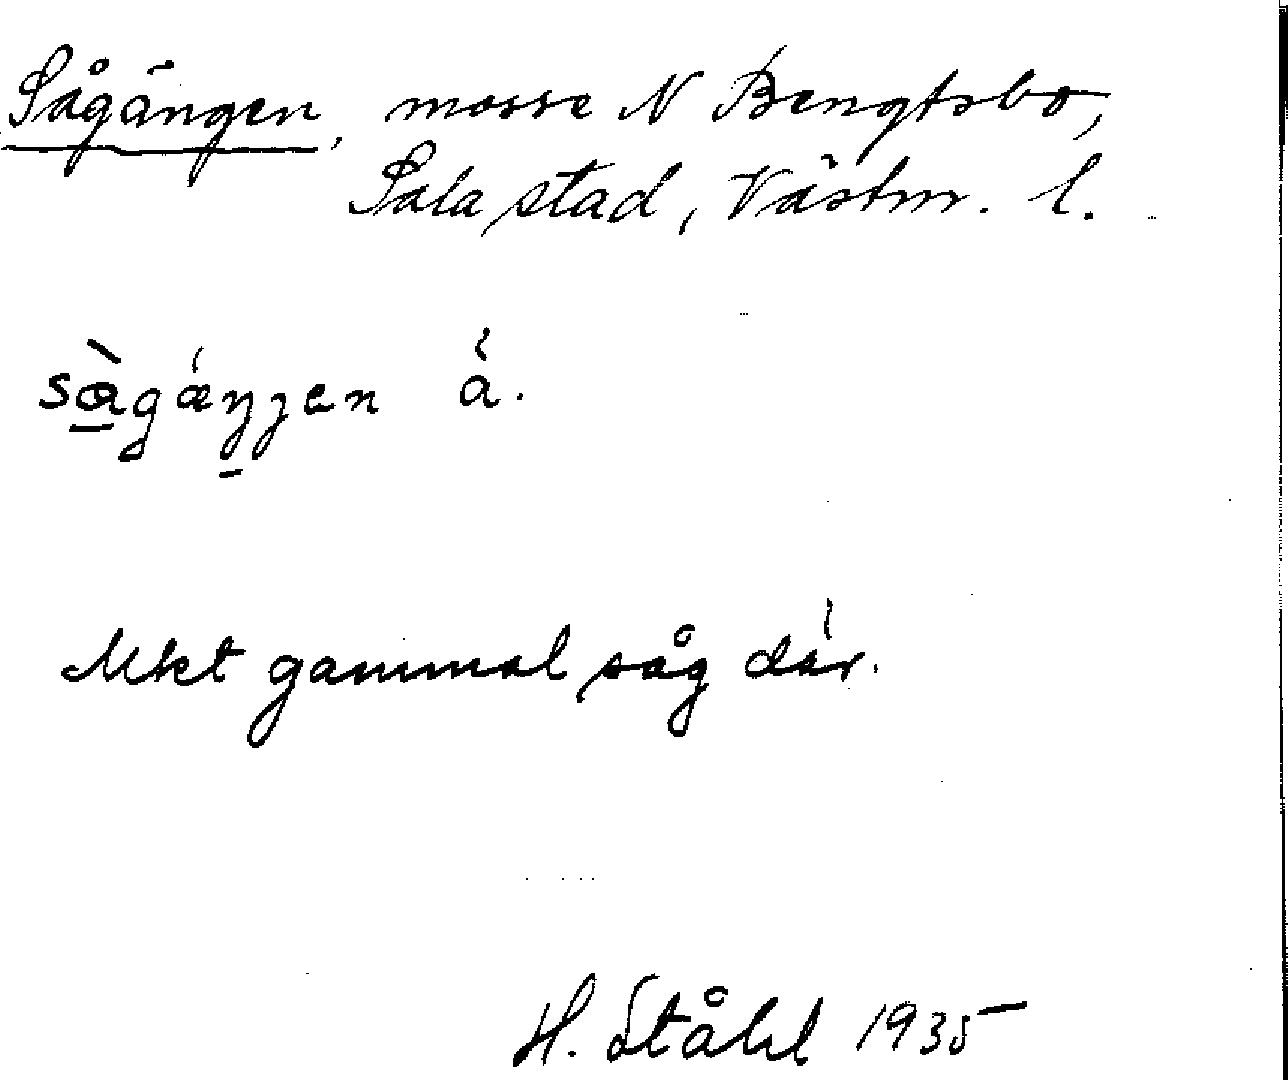 Sågängen, mosse N Bengtsbo,
Sala stad, Västm. l.
så̱gǽŋjen å.
Mkt gammal såg där.
H. Ståhl 1935